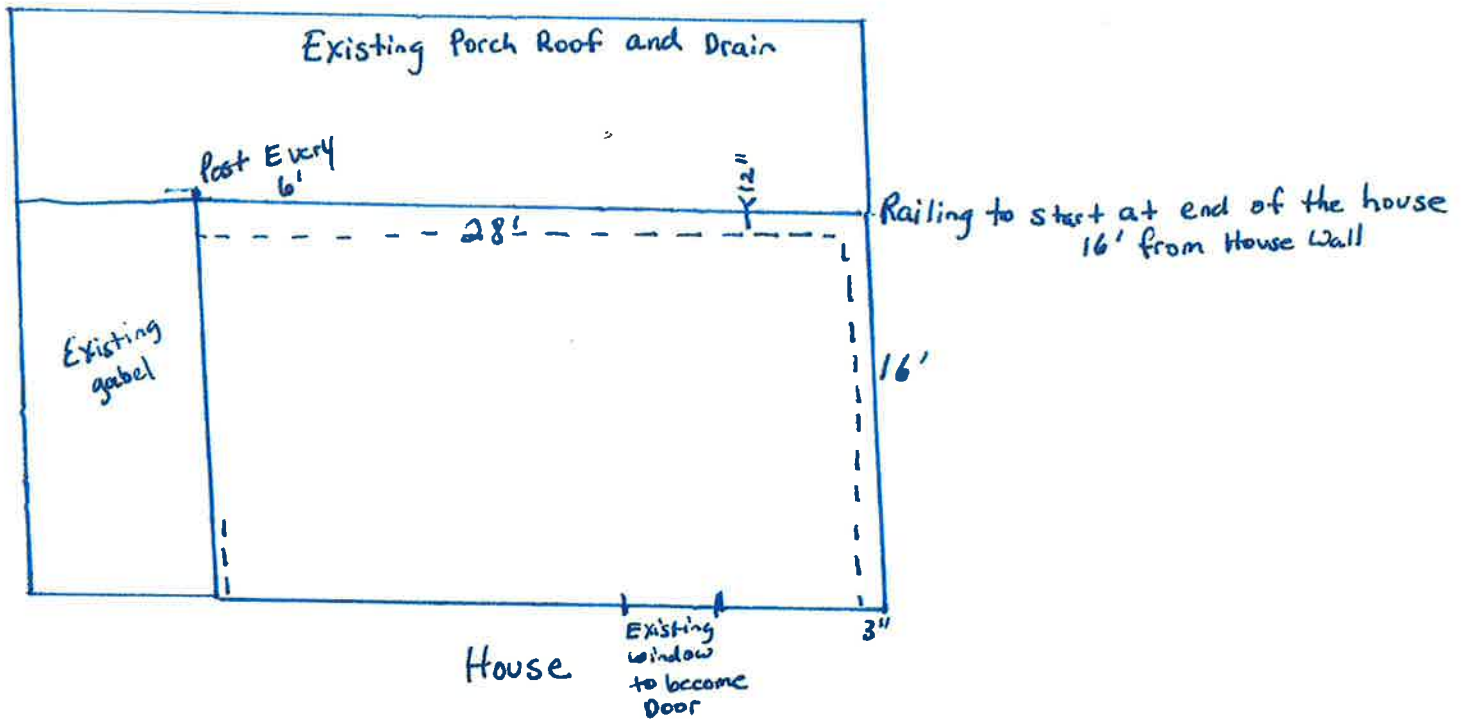 Existing Porch Roof and Drain
Post Every
6'
12"
28'
Railing to start at end of the house
16' from House Wall
Existing
gabel
16'
3"
Existing
window
to become
Door
House